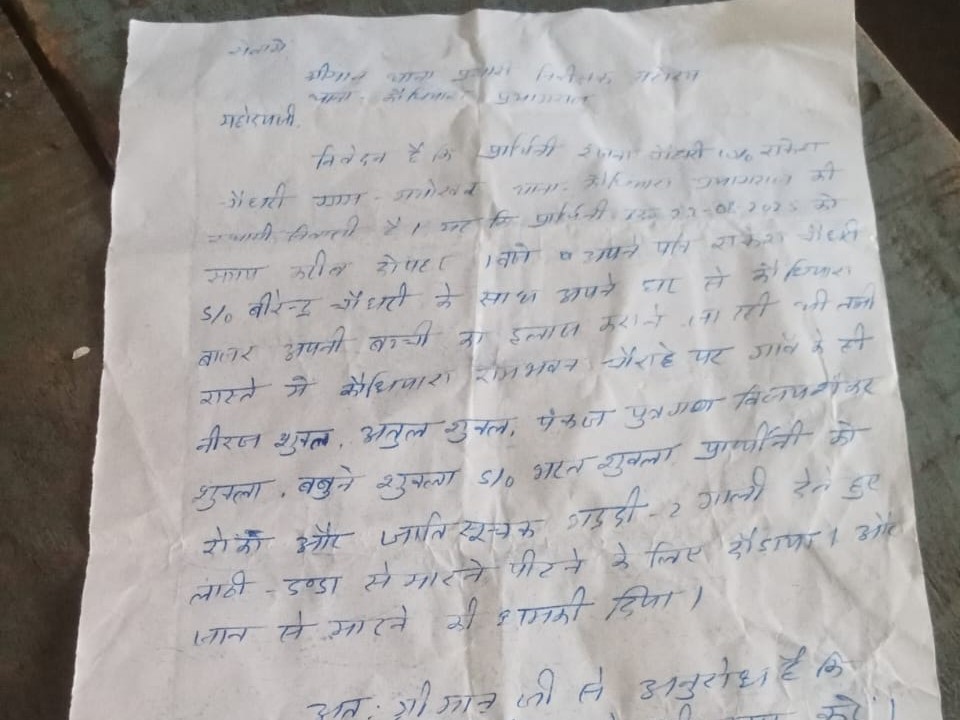 सेवामें
श्रीमान थाना प्रभारी निरीक्षक महोदय
थाना - कौंधियारा प्रयागराज
महोदयजी,
निवेदन है कि प्रार्थिनी चौधरी W/o राकेश
चौधरी ग्राम - थाना - कौंधियारा प्रयागराज की
स्थायी निवासी है। यह कि प्रार्थिनी को
समय करीब दोपहर 1 बजे अपने पति राकेश चौधरी
S/o बीरेन्द्र चौधरी के साथ अपने घर से कौंधियारा
बाजार अपनी बच्ची का इलाज कराने जा रही थी तभी
रास्ते में कौंधियारा रामभवन चौराहे पर गांव के ही
नीरज शुक्ल, अतुल शुक्ल, पंकज पुत्रगण विजयशंकर
शुक्ला, बबुने शुक्ला S/o भरत शुक्ला प्रार्थिनी को
रोका और जातिसूचक भद्दी-2 गाली देते हुए
लाठी - डण्डा से मारने पीटने के लिए दौडाया। और
जान से मारने की धमकी दिया।
अतः श्रीमान जी से अनुरोध है कि